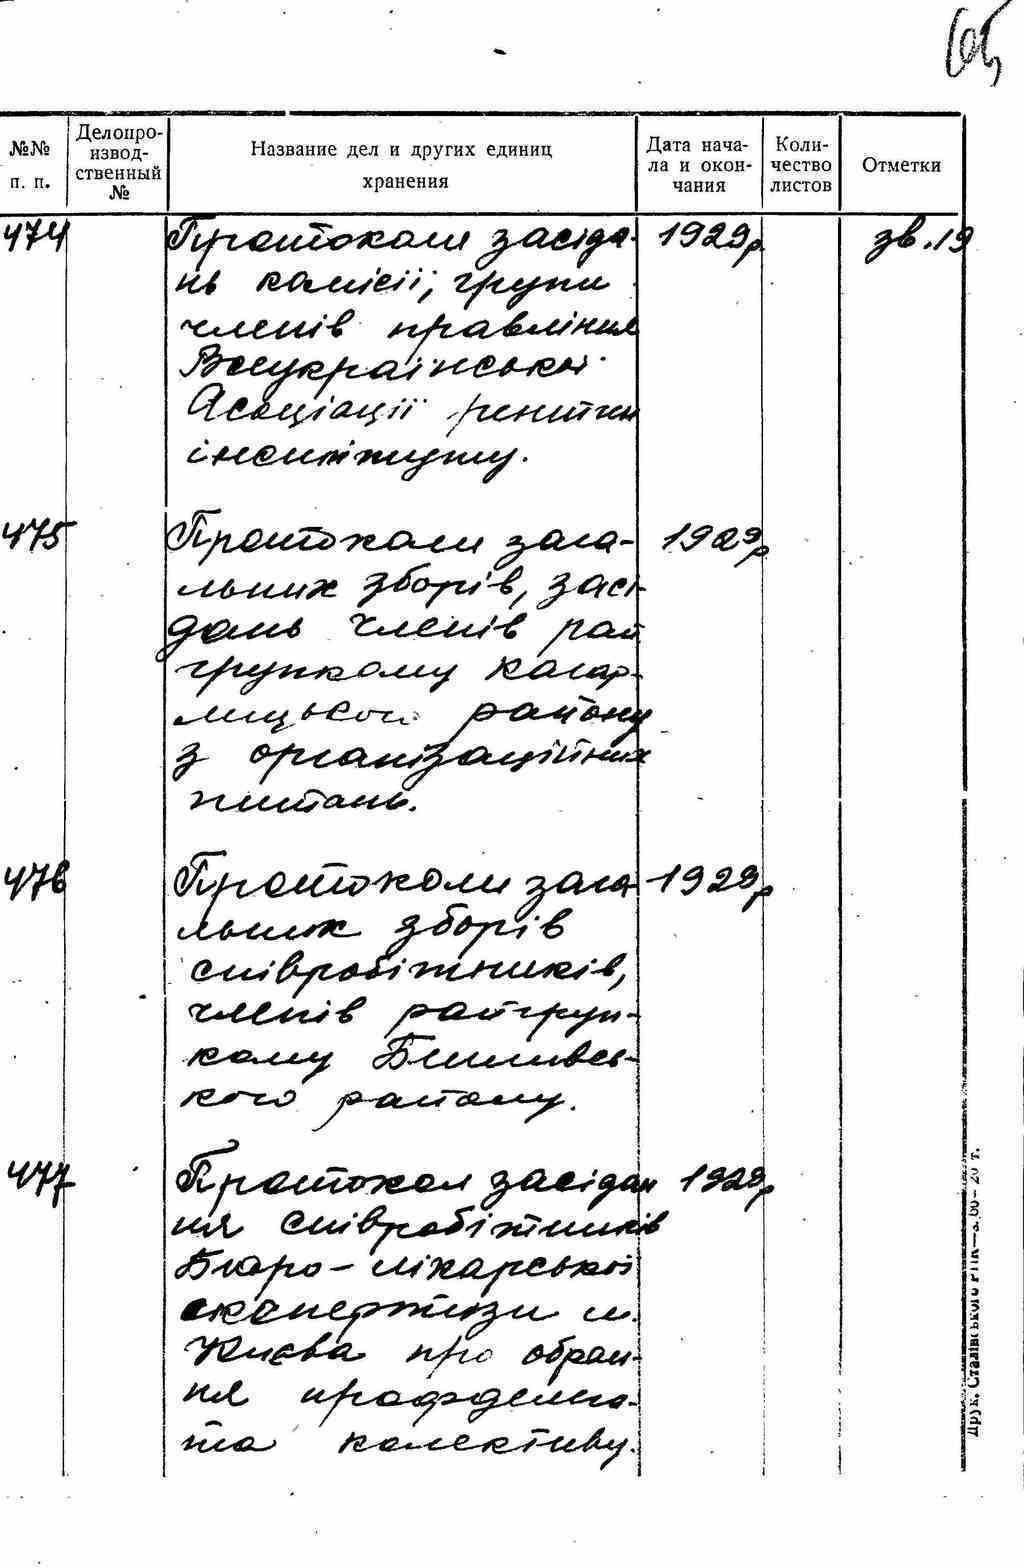 65
№№ п. п.
Делопро-
извод-
ственный
№
Название дел и других единиц
хранения
Дата нача-
ла и окон-
чания
Коли-
чество
листов
Отметки
474 Протоколи засіда- 1929р. зв.19
нь комісії, групи
членів правління
Всеукраїнської
Асоціації
інституту.
475 Протоколи зага- 1929р
льних зборів, засі-
дань членів рай
групкому Кагар-
лицького району
з організаційних
питань.
476 Протоколи зага- 1929р
льних зборів
співробітників,
членів райгруп-
кому
кого району.
477 Протокол засідан 1929р
ня співробітників
Бюро-лікарської
експертизи м.
Києва про обран-
ня профделега-
та колективу.
Друк. Сталінського РПК—3.60— 20 т.